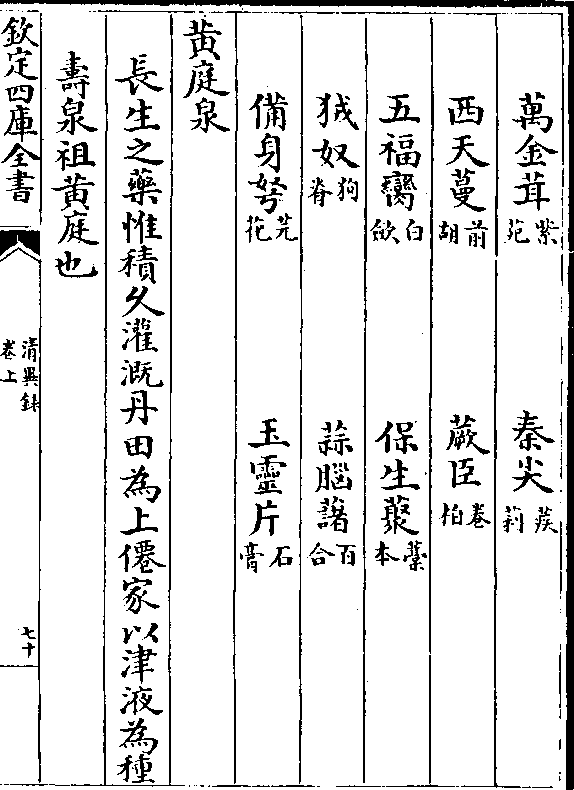 萬金茸紫菀　秦尖蒺莉
西天蔓前胡　蕨臣卷柏
五福臠白歛　保生藂藁本
狨奴狗脊　蒜腦藷百合
備身弩芫花　玉靈片石膏
黄庭泉
長生之藥惟積久灌溉丹田為上僊家以津液為種
壽泉祖黄庭也
欽定四庫全書　清異録卷上　七十